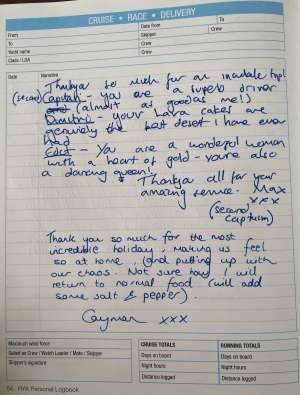 CRUISE • RACE • DELIVERY
From
Date from
To
To
Skipper
Crew
Yacht name
Crew
Class / LOA
Crew
Date
Narrative
Thankyou so much for an incredible trip!
(second) Captain - you are a superb driver
(almost as good as me!)
Dimitri - your Lava cakes are
genuinely the best desert I have ever
had
Edit - You are a wonderful woman
with a heart of gold - youre also
a dancing queen!
Thankyou all for your
amazing service. Max
xxx
(second
captain)
Thank you so much for the most
incredible holiday, making us feel
so at home, (and putting up with
our chaos. Not sure how I will
return to normal food (will add
some salt & pepper).
Cayman xxx
Maximum wind force
CRUISE TOTALS
RUNNING TOTALS
Sailed as Crew / Watch Leader / Mate / Skipper
Days on board
Days on board
Skipper's signature
Night hours
Night hours
Distance logged
Distance logged
54 RYA Personal Logbook